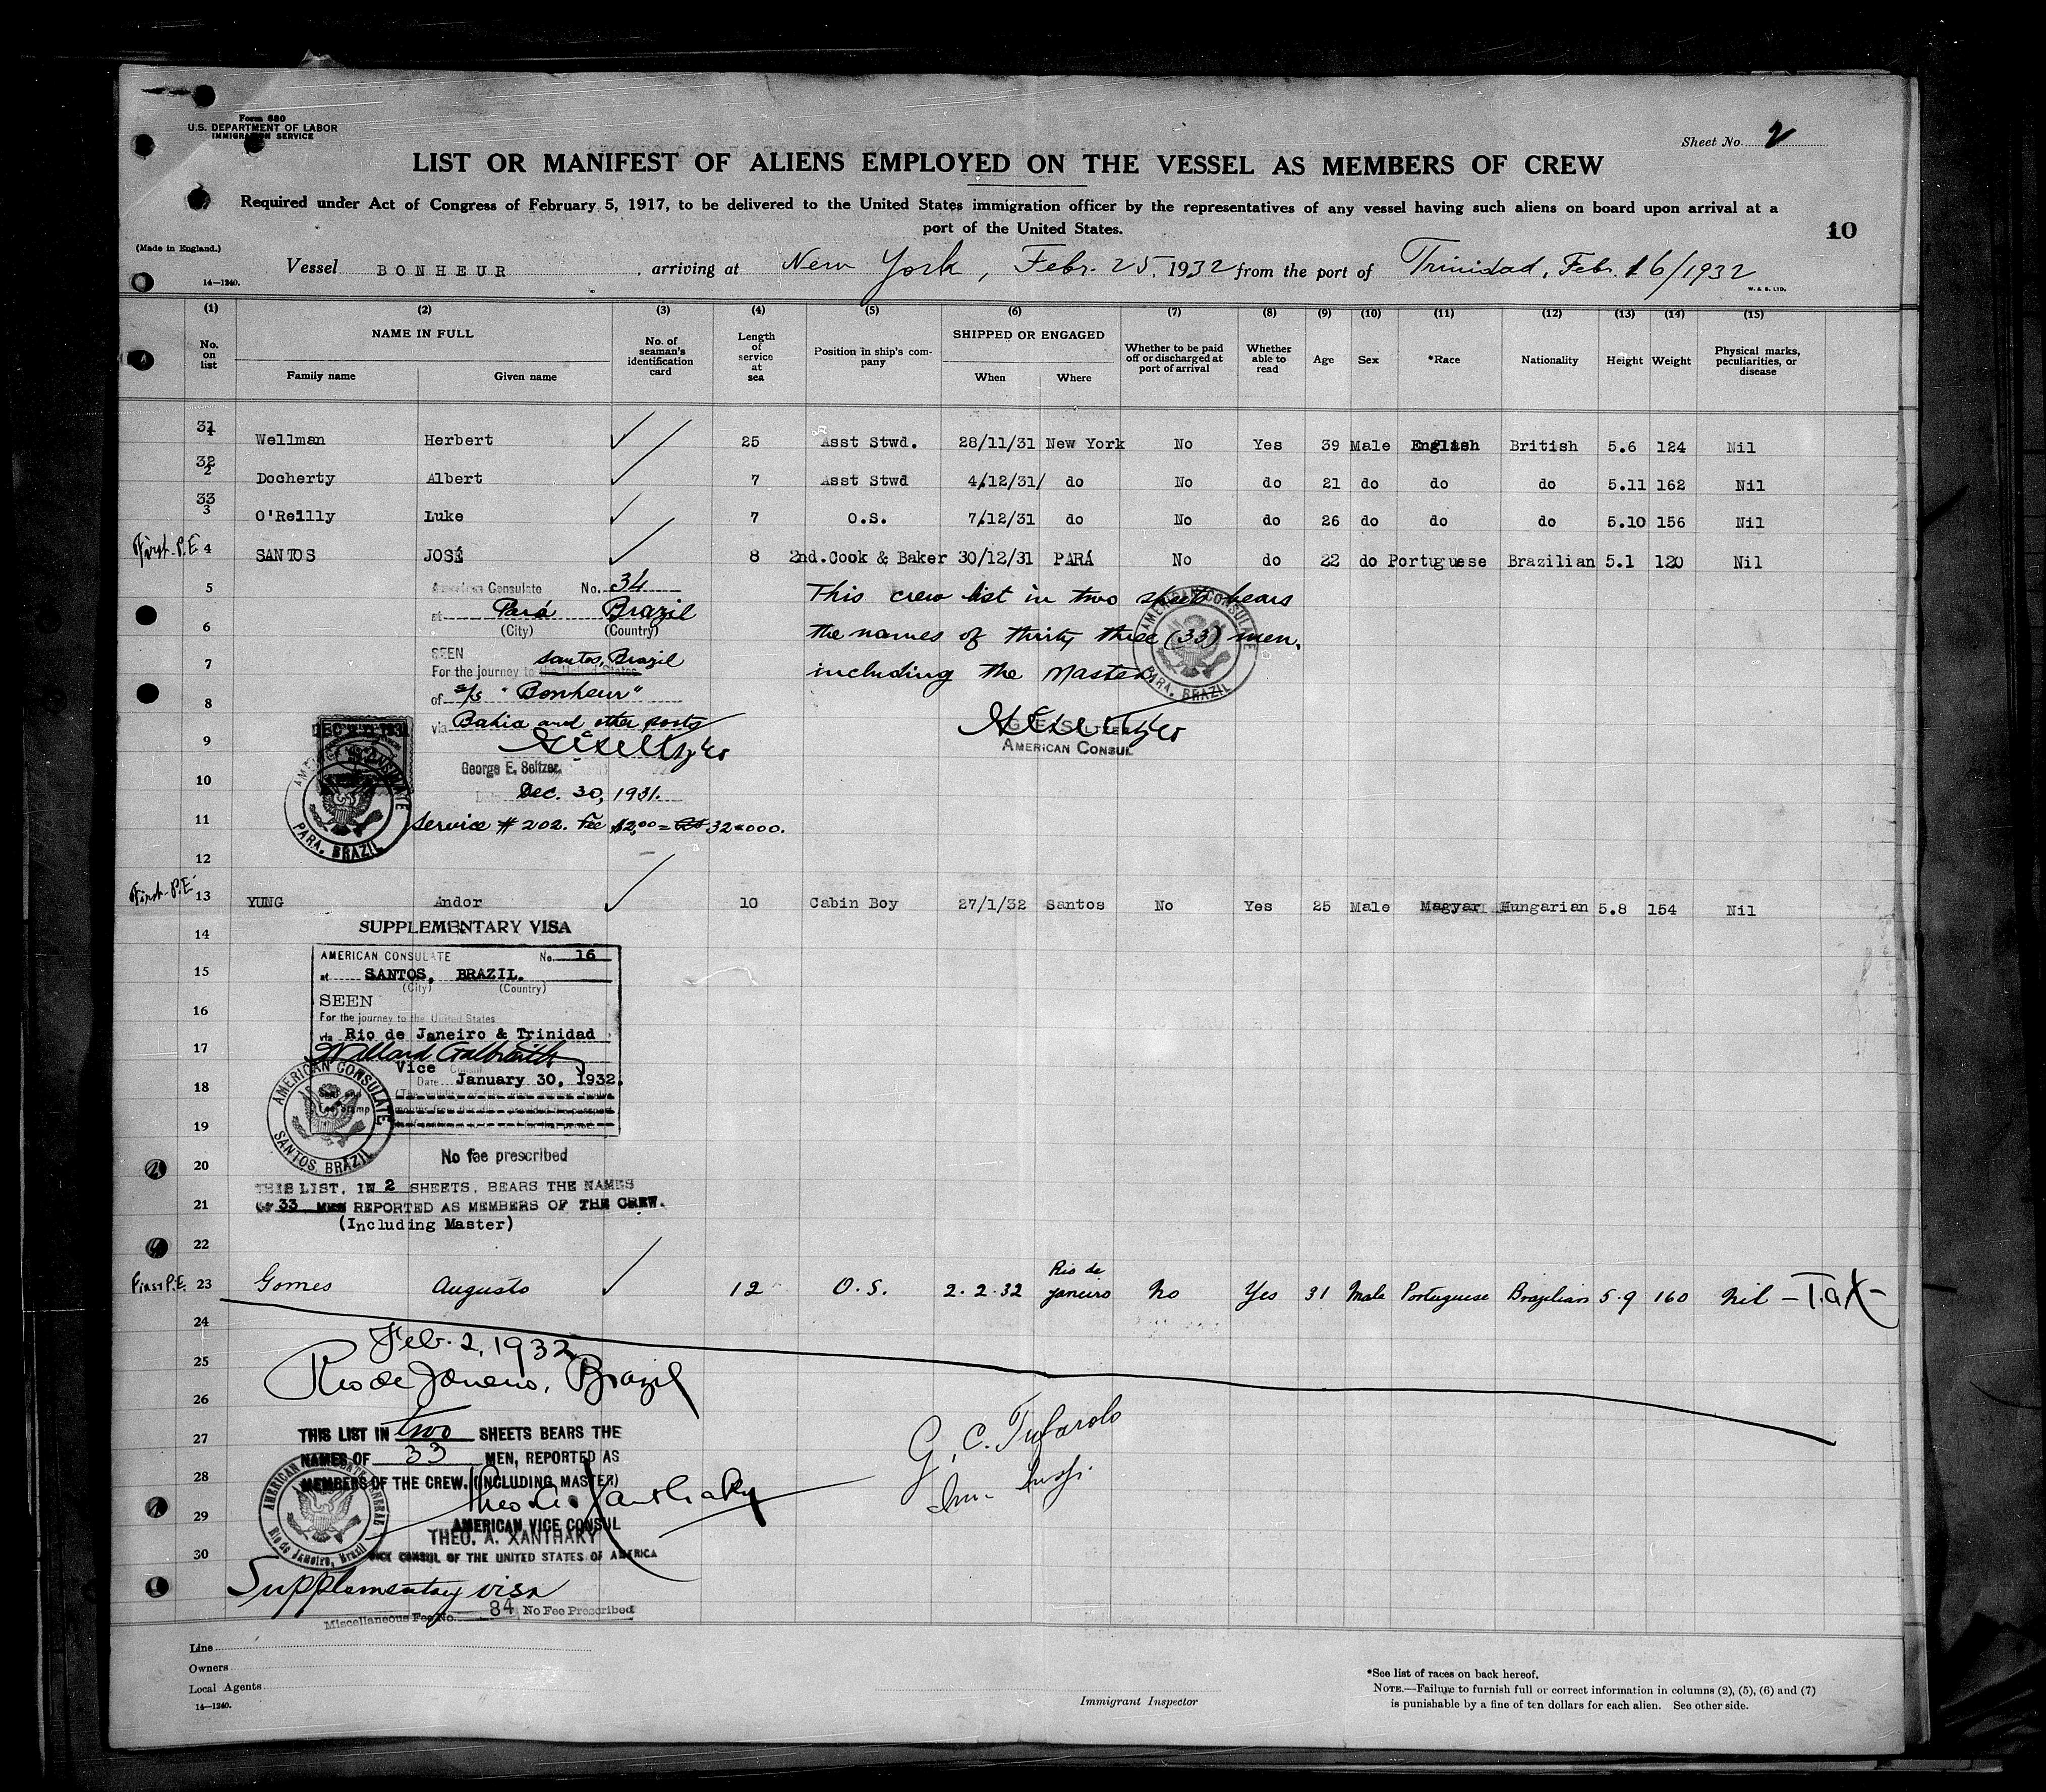 Form 680
U.S. DEPARTMENT OF LABOR
IMMIGRATION SERVICE
Sheet No. 2
LIST OR MANIFEST OF ALIENS EMPLOYED ON THE VESSEL AS MEMBERS OF CREW
Required under Act of Congress of February 5, 1917, to be delivered to the United States immigration officer by the representatives of any vessel having such aliens on board upon arrival at a
port of the United States.
10
(Made in England.)
Vessel BONHEUR, arriving at New York, Febr. 25, 1932 from the port of Trinidad, Feb. 16/1932
14—1240.
W. & S. LTD.
(1) (2) (3) (4) (5) (6) (7) (8) (9) (10) (11) (12) (13) (14) (15)
No. on list NAME IN FULL Family name Given name No. of seaman's identification card Length of service at sea Position in ship's company SHIPPED OR ENGAGED When Where Whether to be paid off or discharged at port of arrival Whether able to read Age Sex *Race Nationality Height Weight Physical marks, peculiarities, or disease
31 Wellman Herbert 25 Asst Stwd. 28/11/31 New York No Yes 39 Male English British 5.6 124 Nil
32 2 Docherty Albert 7 Asst Stwd 4/12/31/ do No do 21 do do do 5.11 162 Nil
33 3 O'Reilly Luke 7 O.S. 7/12/31 do No do 26 do do do 5.10 156 Nil
First P.E. 4 SANTOS JOSÉ 8 2nd.Cook & Baker 30/12/31 PARÁ No do 22 do Portuguese Brazilian 5.1 120 Nil
5 American Consulate No. 34
at Pará Brazil
(City) (Country)
This crew list in two sheets bears
6 the names of thirty three (33) men,
7 including the Master
AMERICAN CONSULATE
PARA, BRAZIL
SEEN
Santos, Brazil
For the journey to the United States
8 of s/s "Bonheur"
via Bahia and other ports
9 AMERICAN CONSUL
10 George E. Seltzer.
Dec. 30, 1931.
AMERICAN CONSULATE
PARA, BRAZIL
11 Service # 202. Fee $2.00 = 32$000.
12
First P.E. 13 YUNG Andor 10 Cabin Boy 27/1/32 Santos No Yes 25 Male Magyar Hungarian 5.8 154 Nil
14 SUPPLEMENTARY VISA
AMERICAN CONSULATE No. 16
15 at SANTOS, BRAZIL.
(City) (Country)
16 SEEN
For the journey to the United States
via Rio de Janeiro & Trinidad
17 Willard Galbraith
Vice Consul
18 Date January 30, 1932.
AMERICAN CONSULATE
SANTOS, BRAZIL
19
20 No fee prescribed
THIS LIST, IN 2 SHEETS, BEARS THE NAMES
21 OF 33 MEN REPORTED AS MEMBERS OF THE CREW.
(Including Master)
22
First P.E. 23 Gomes Augusto 12 O.S. 2.2.32 Rio de Janeiro No Yes 31 Male Portuguese Brazilian 5.9 160 Nil - Tax -
24 Feb. 2, 1932
25 Rio de Janeiro, Brazil
26
27 THIS LIST IN two SHEETS BEARS THE
NAMES OF 33 MEN, REPORTED AS
28 MEMBERS OF THE CREW. (INCLUDING MASTER)
Theo. A. Xanthaky
G. C. Tufarolo
Imm. Insp.
29 AMERICAN VICE CONSUL
THEO. A. XANTHAKY
30 VICE CONSUL OF THE UNITED STATES OF AMERICA
AMERICAN CONSULATE GENERAL
Rio de Janeiro, Brazil
Supplementary visa
Miscellaneous Fee No. 84 No Fee Prescribed
Line
Owners
Local Agents
14—1240.
Immigrant Inspector
*See list of races on back hereof.
NOTE.—Failure to furnish full or correct information in columns (2), (5), (6) and (7)
is punishable by a fine of ten dollars for each alien. See other side.